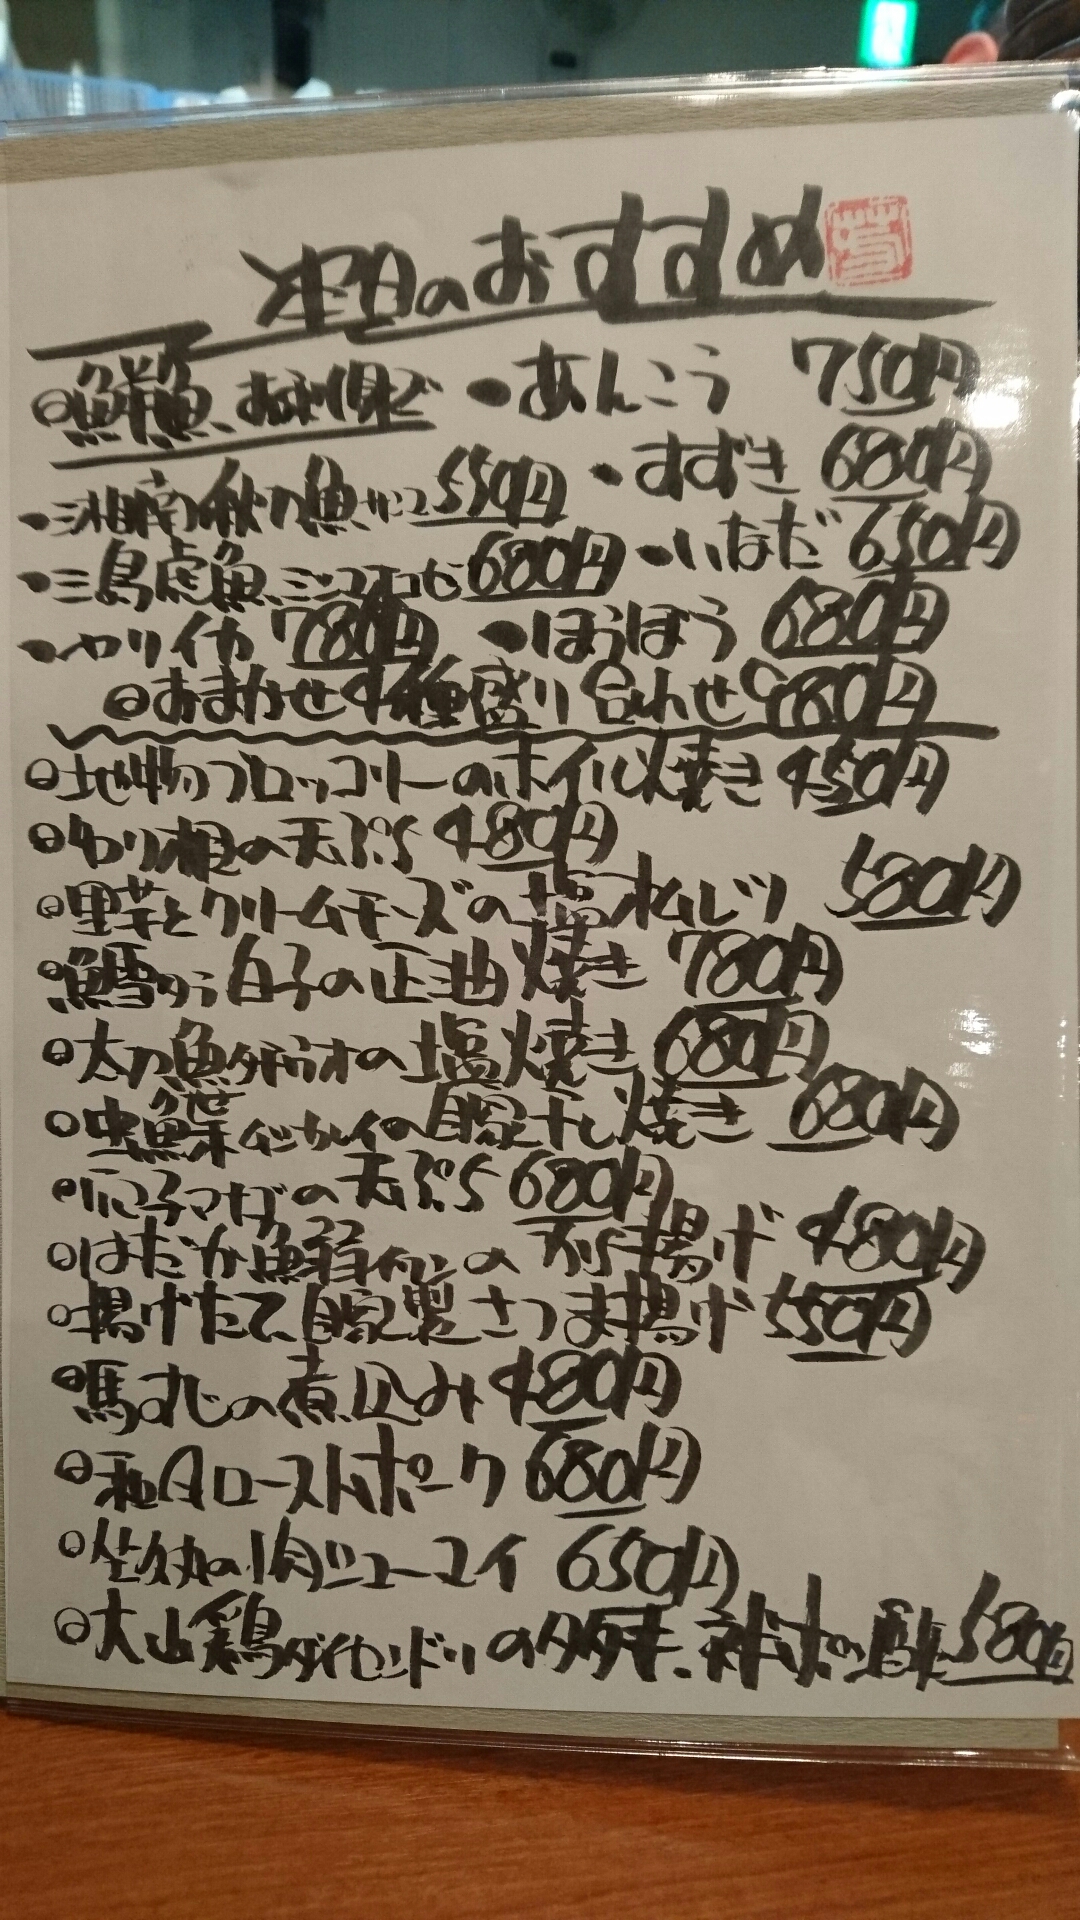 本日のおすすめ
鮮魚、お刺身で ・あんこう 750円
・湘南秋刀魚 サンマ 550円 ・すずき 680円
・三島虎魚、ミシマオコゼ 680円 ・いなだ 650円
・ヤリイカ 780円 ・ほうぼう 680円
おまかせ4種盛り合わせ 980円
地物ブロッコリーのホイル焼き 450円
の天ぷら 480円
里芋とクリームチーズの塩オムレツ 580円
鱈タラ白子の正油焼き 780円
太刀魚タチウオの塩焼き 680円
虫鰈ムシカレイの自家干し焼き 680円
の天ぷら 680円
はだか鰯イワシの天ぷら揚げ 480円
揚げたて、自家製さつま揚げ 550円
すじの煮込み 480円
ローストポーク 680円
の肉シューマイ 650円
大山鶏ダイセンドリのタタキ、ネギポン酢 580円